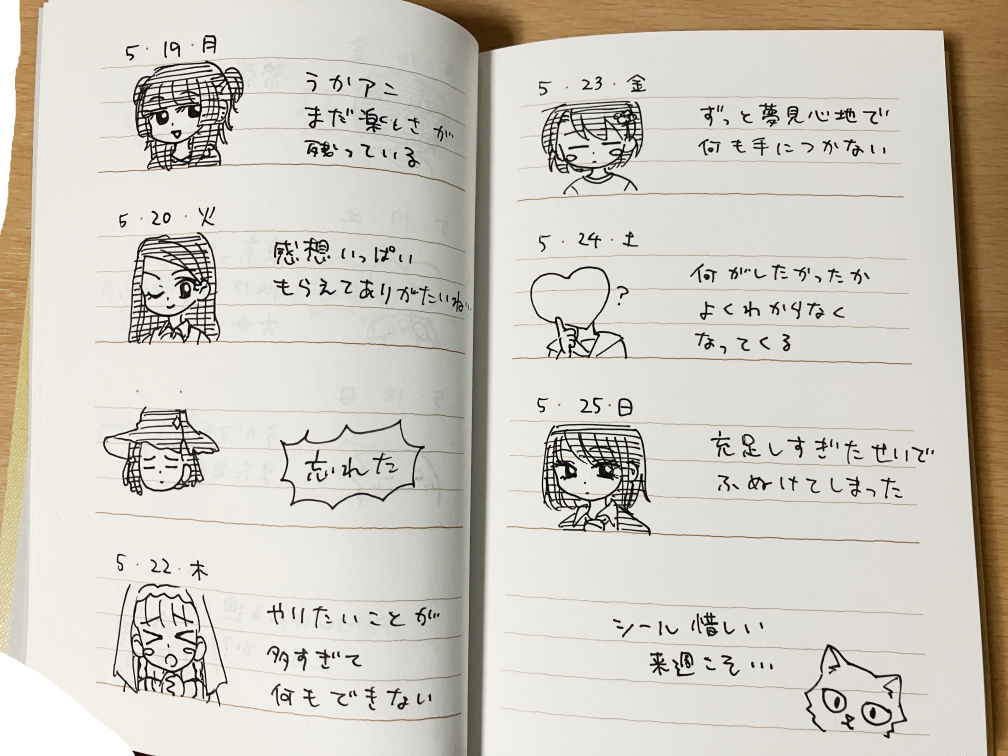 5・19・月
うかアニ
まだ楽しさが
残っている
5・20・火
感想いっぱい
もらえてありがたいね…
忘れた
5・22・木
やりたいことが
多すぎて
何もできない
5・23・金
ずっと夢見心地で
何も手につかない
5・24・土
?
何がしたかったか
よくわからなく
なってくる
5・25・日
充足しすぎたせいで
ふぬけてしまった
シール惜しい
来週こそ…